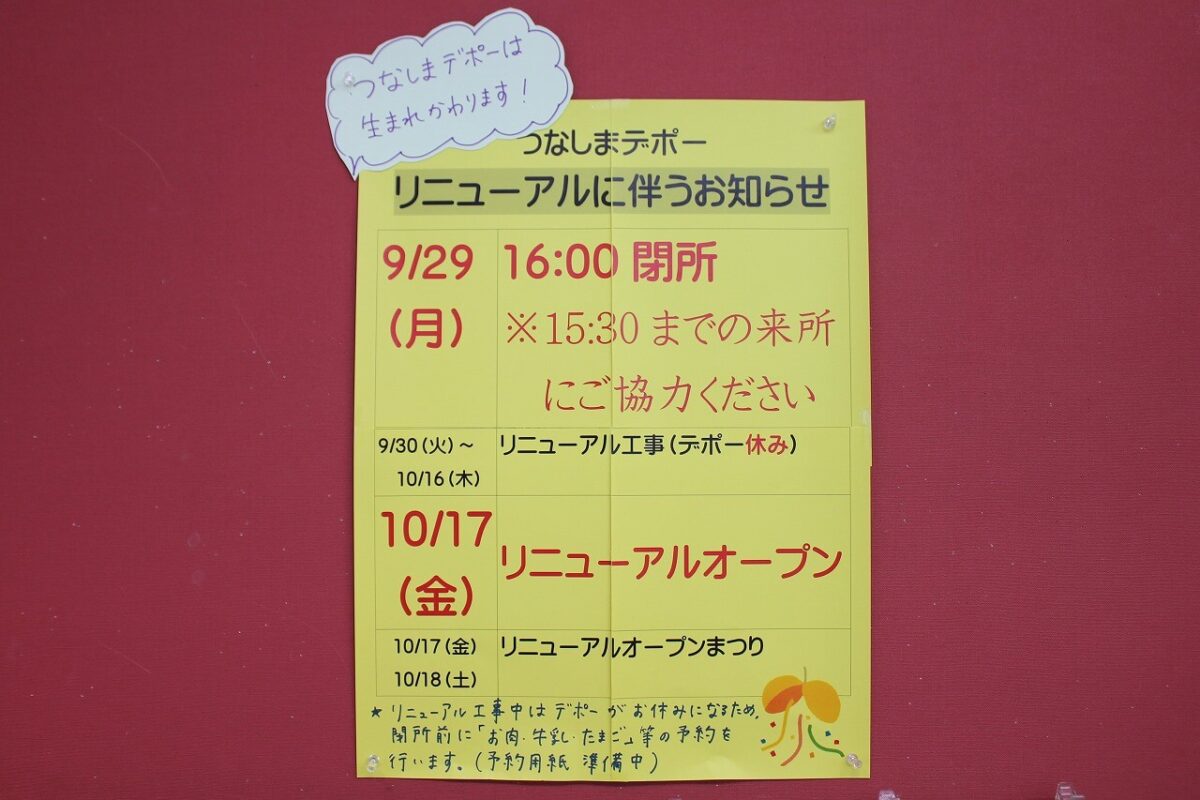 つなしまデポーは
生まれかわります！
つなしまデポー
リニューアルに伴うお知らせ
9/29 16:00 閉所
（月） ※15:30 までの来所
にご協力ください
9/30（火）～ リニューアル工事（デポー休み）
10/16（木）
10/17
リニューアルオープン
（金）
10/17（金） リニューアルオープンまつり
10/18（土）
★ リニューアル工事中はデポーがお休みになるため、
閉所前に「お肉・牛乳・たまご」等の予約を
行います。（予約用紙 準備中）